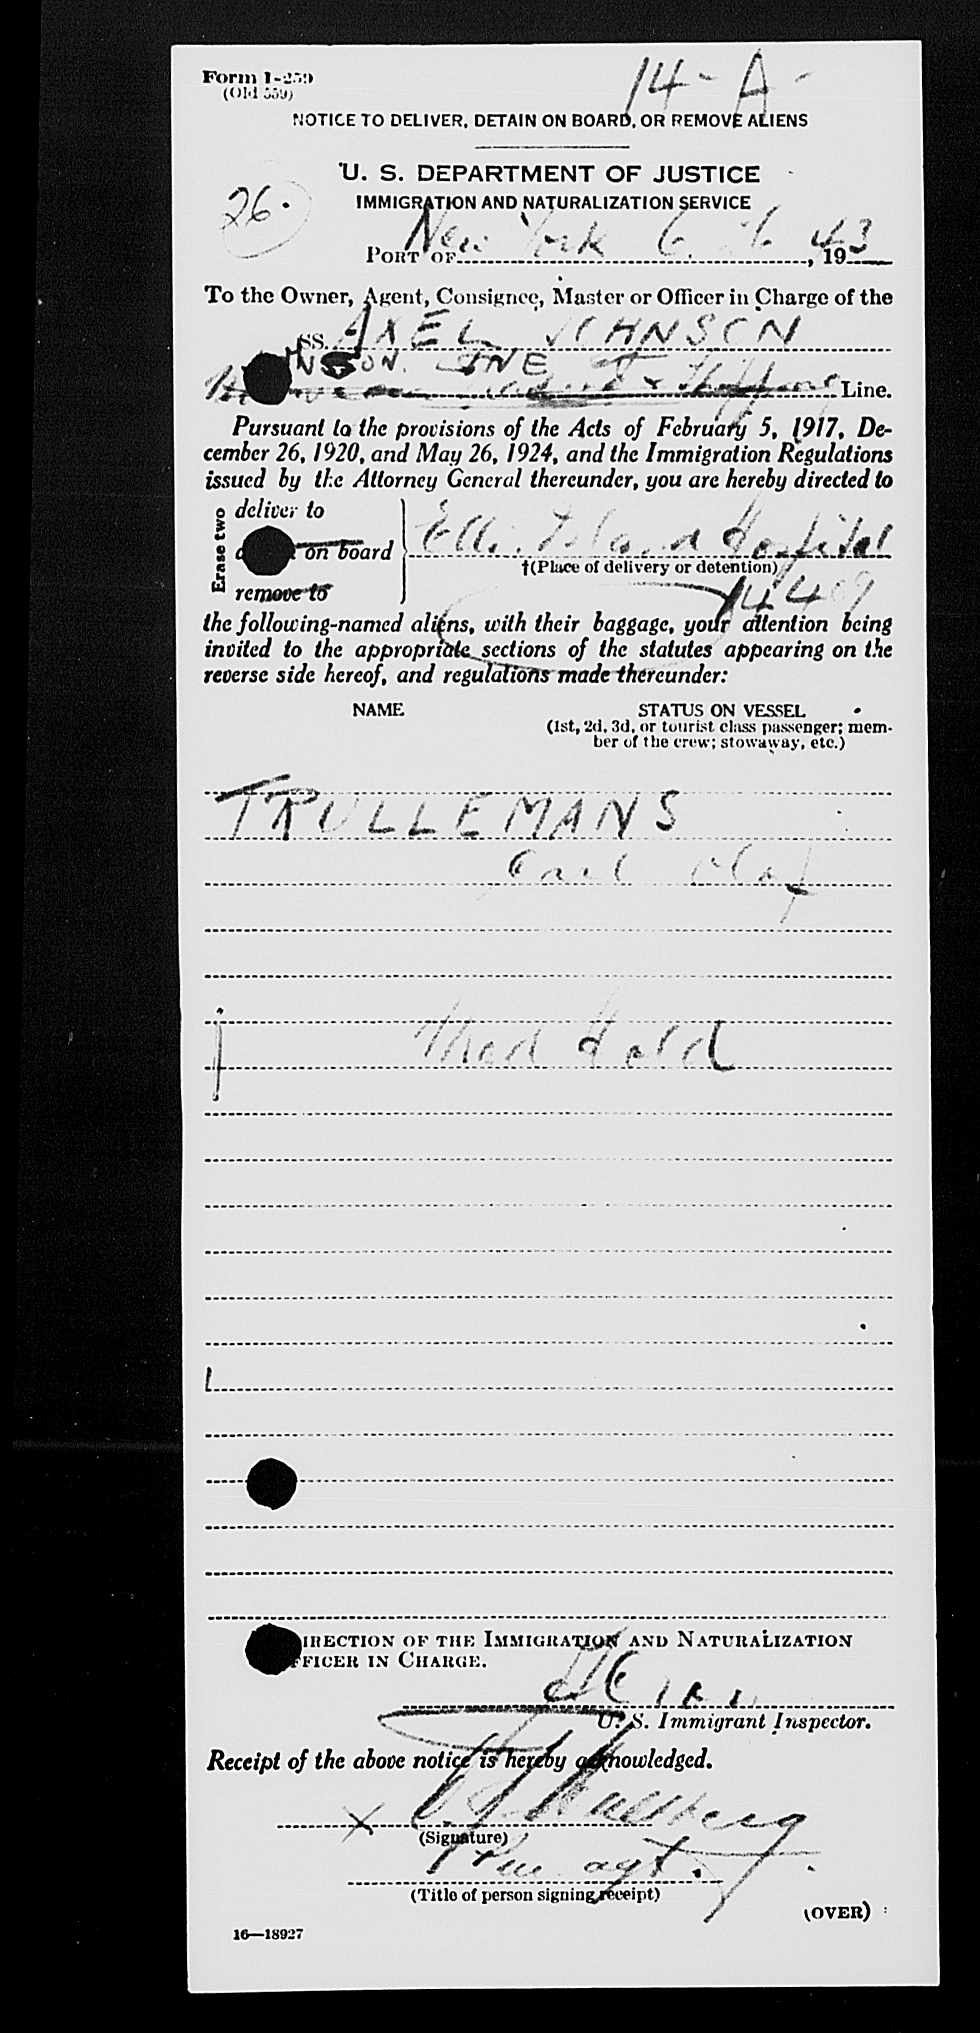 Form I-259
(Old 559)
14-A-
NOTICE TO DELIVER, DETAIN ON BOARD, OR REMOVE ALIENS
U. S. DEPARTMENT OF JUSTICE
IMMIGRATION AND NATURALIZATION SERVICE
26.
PORT OF New York 6. , 1943
To the Owner, Agent, Consignee, Master or Officer in Charge of the
SS. AXEL JOHNSON
LINE
Line.
Pursuant to the provisions of the Acts of February 5, 1917, De-
cember 26, 1920, and May 26, 1924, and the Immigration Regulations
issued by the Attorney General thereunder, you are hereby directed to
Erase two
deliver to
on board
remove to
Ellis Island Hospital
†(Place of delivery or detention)
the following-named aliens, with their baggage, your attention being
invited to the appropriate sections of the statutes appearing on the
reverse side hereof, and regulations made thereunder:
NAME
STATUS ON VESSEL
(1st, 2d, 3d, or tourist class passenger; mem-
ber of the crew; stowaway, etc.)
TRULLEMANS
Carl Olaf
Med Hold
IRECTION OF THE IMMIGRATION AND NATURALIZATION
FFICER IN CHARGE.
U. S. Immigrant Inspector.
Receipt of the above notice is hereby acknowledged.
X
(Signature)
agt.
(Title of person signing receipt)
(OVER)
16—18927